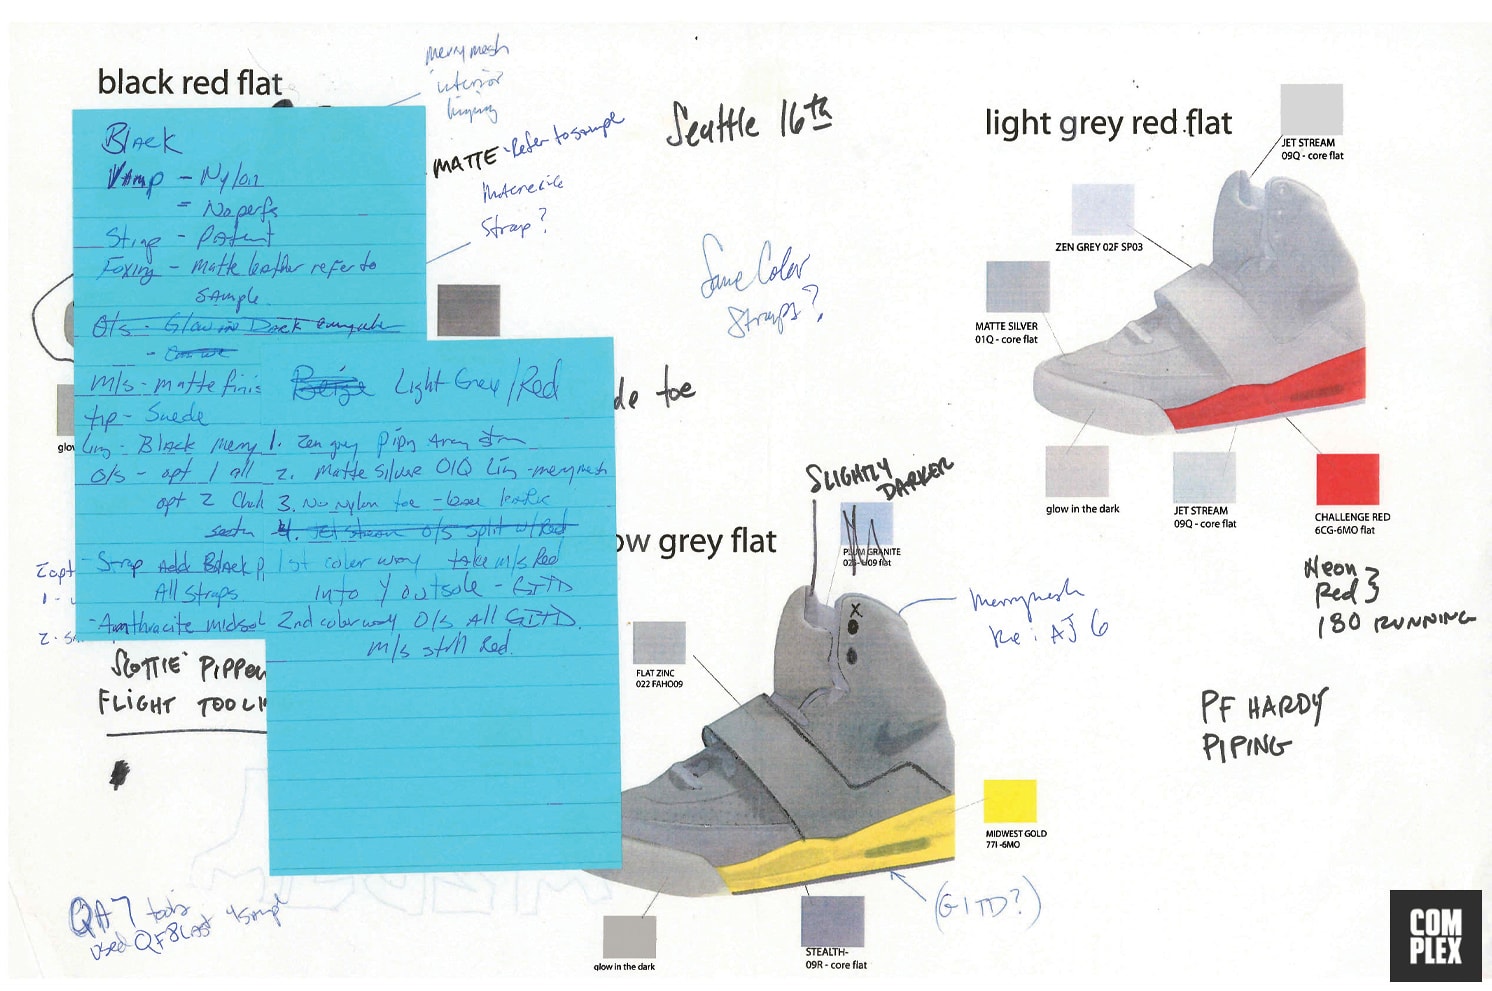 black red flat
merrymesh
interior
Seattle 16th
MATTE - Refer to sample
Strap?
Same Color
Straps?
Black
Vamp - Nylon
= No perfs
Strap - Patent
Foxing - Matte leather refer to
sample.
O/s - Glow in Dark
m/s - matte finis
tip - Suede
Ling - Black merry
O/s - opt 1 all
opt 2
- Strap Add Black P
All straps.
- Anthracite midsol
Beige Light Grey/Red
1. Zen grey piping Array
2. Matte Silver 01Q Ling - merrymesh
3. No nylon toe - base
4. Jet Stream o/s split w/ Red
1st color way take m/s Red
into outsole - GITD
2nd colorway O/s All GITD.
m/s still Red.
2 opt
1 -
2 - S
glov
de toe
SCOTTIE PIPPEN
FLIGHT TOOLI
QA7 tools
used QF8 Last
light grey red flat
JET STREAM
09Q - core flat
ZEN GREY 02F SP03
MATTE SILVER
01Q - core flat
glow in the dark
JET STREAM
09Q - core flat
CHALLENGE RED
6CG-6MO flat
Neon
Red }
180 RUNNING
PF HARDY
PIPING
ow grey flat
SLIGHTLY
DARKER
PLUM GRANITE
flat
X
Merrymesh
Re: AJ 6
FLAT ZINC
022 FAHO09
MIDWEST GOLD
77I -6MO
(GITD?)
glow in the dark
STEALTH-
09R - core flat
COM
PLEX